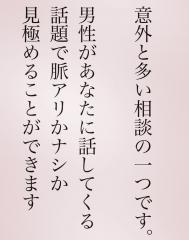 意外と多い相談の一つです。
男性があなたに話してくる
話題で脈アリかナシか
見極めることができます